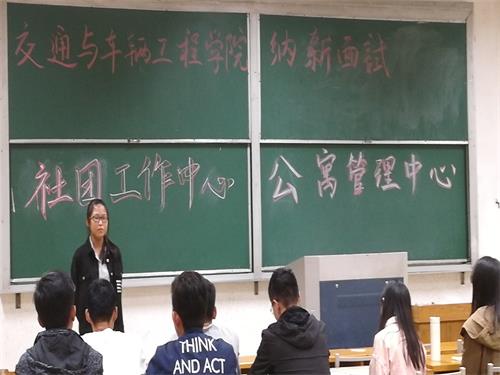 交通与车辆工程学院 纳新面试
社团工作中心 公寓管理中心
THINK
AND ACT